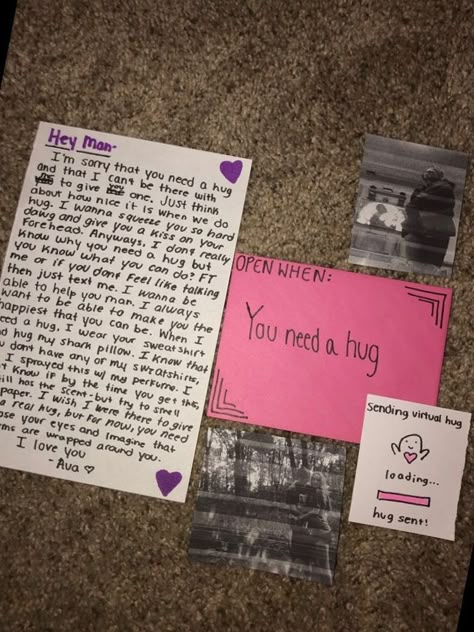 Hey Man-
I'm sorry that you need a hug
and that I can't be there with
to give one. Just think
about how nice it is when we do
hug. I wanna squeeze you so hard
dawg and give you a kiss on your
forehead. Anyways, I dont really
know why you need a hug but
you know what you can do? FT
me or if you dont feel like talking
then just text me. I wanna be
able to help you man. I always
want to be able to make you the
happiest that you can be. When I
eed a hug, I wear your sweatshirt
nd hug my shark pillow. I know that
u dont have any of my sweatshirts,
I sprayed this w/ my perfume. I
t know if by the time you get this,
till has the scent- but try to smell
paper. I wish I were there to give
a real hug, but for now, you need
ose your eyes and imagine that
rms are wrapped around you.
I love you
- Ava ♡
OPEN WHEN:
You need a hug
Sending virtual hug
loading...
hug sent!